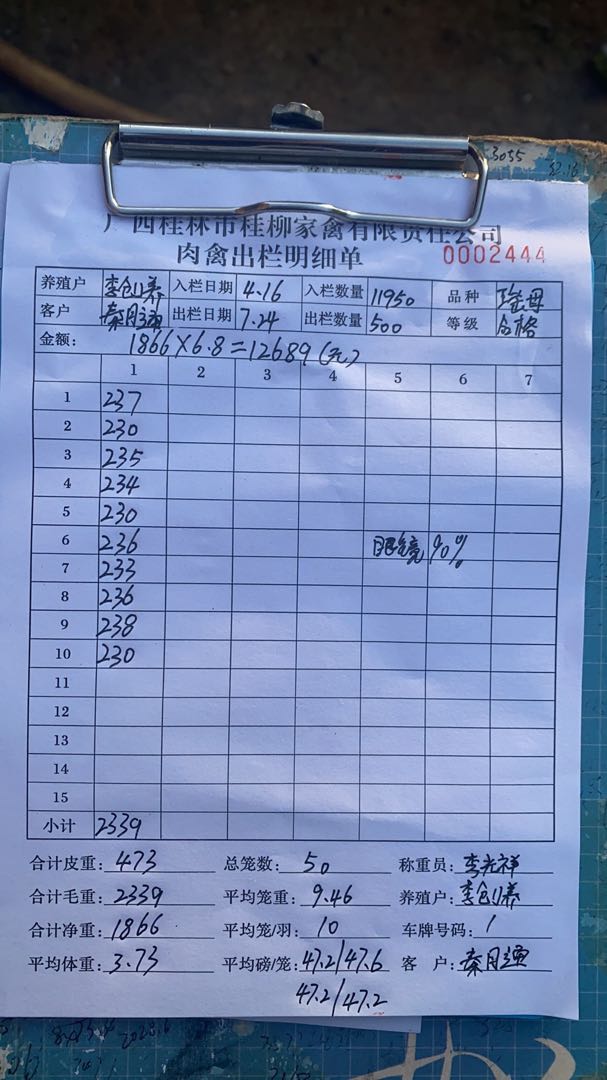 广西桂林市桂柳家禽有限责任公司
肉禽出栏明细单 0002444
养殖户 入栏日期 4.16 入栏数量 11950 品种
客户 秦月 出栏日期 7.24 出栏数量 500 等级 合格
金额: 1866×6.8=12689(元)
1 2 3 4 5 6 7
1 237
2 230
3 235
4 234
5 230
6 236 眼镜 90%
7 233
8 236
9 238
10 230
11
12
13
14
15
小计 2339
合计皮重: 473 总笼数: 50 称重员: 李光祥
合计毛重: 2339 平均笼重: 9.46 养殖户:
合计净重: 1866 平均笼/羽: 10 车牌号码: 1
平均体重: 3.73 平均磅/笼: 47.2/47.6 客 户: 秦月
47.2/47.2
3055